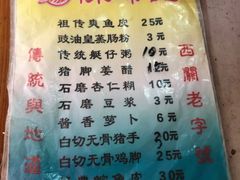 祖传爽鱼皮 25元
豉油皇蒸肠粉 3元
传统艇仔粥 10元
猪脚姜醋 12元
石磨杏仁糊 10元
石磨豆浆 3元
酱香萝卜 6元
白切无骨猪手 20元
白切无骨鸡脚 25元
30元
傳統與地道
西關老字號